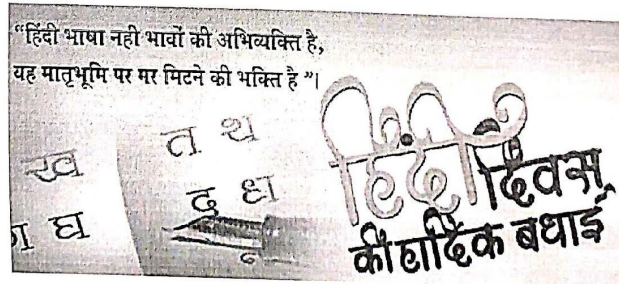 “हिंदी भाषा नही भावों की अभिव्यक्ति है,
यह मातृभूमि पर मर मिटने की भक्ति है ”।
त थ
ख
द ध
ग घ
हिंदी दिवस
की हार्दिक बधाई